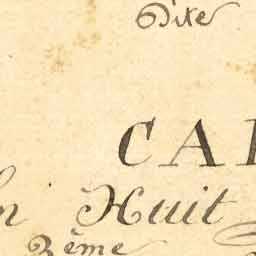 Dite
CA
n Huit
3ême